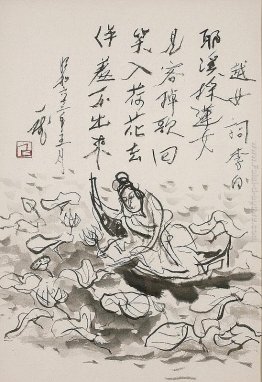 越女詞 李白
耶溪採蓮女
見客棹歌回
笑入荷花去
佯羞不出來